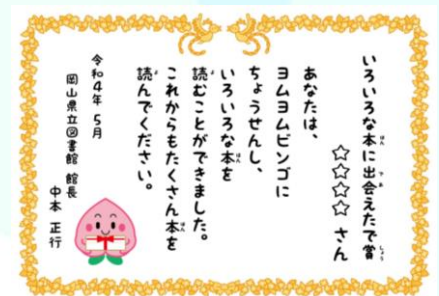 いろいろな本に出会えたで賞
☆☆☆☆ さん
あなたは、
ヨムヨムビンゴに
ちょうせんし、
いろいろな本を
読むことができました。
これからもたくさん本を
読んでください。
令和4年 5月
岡山県立図書館 館長
中本 正行